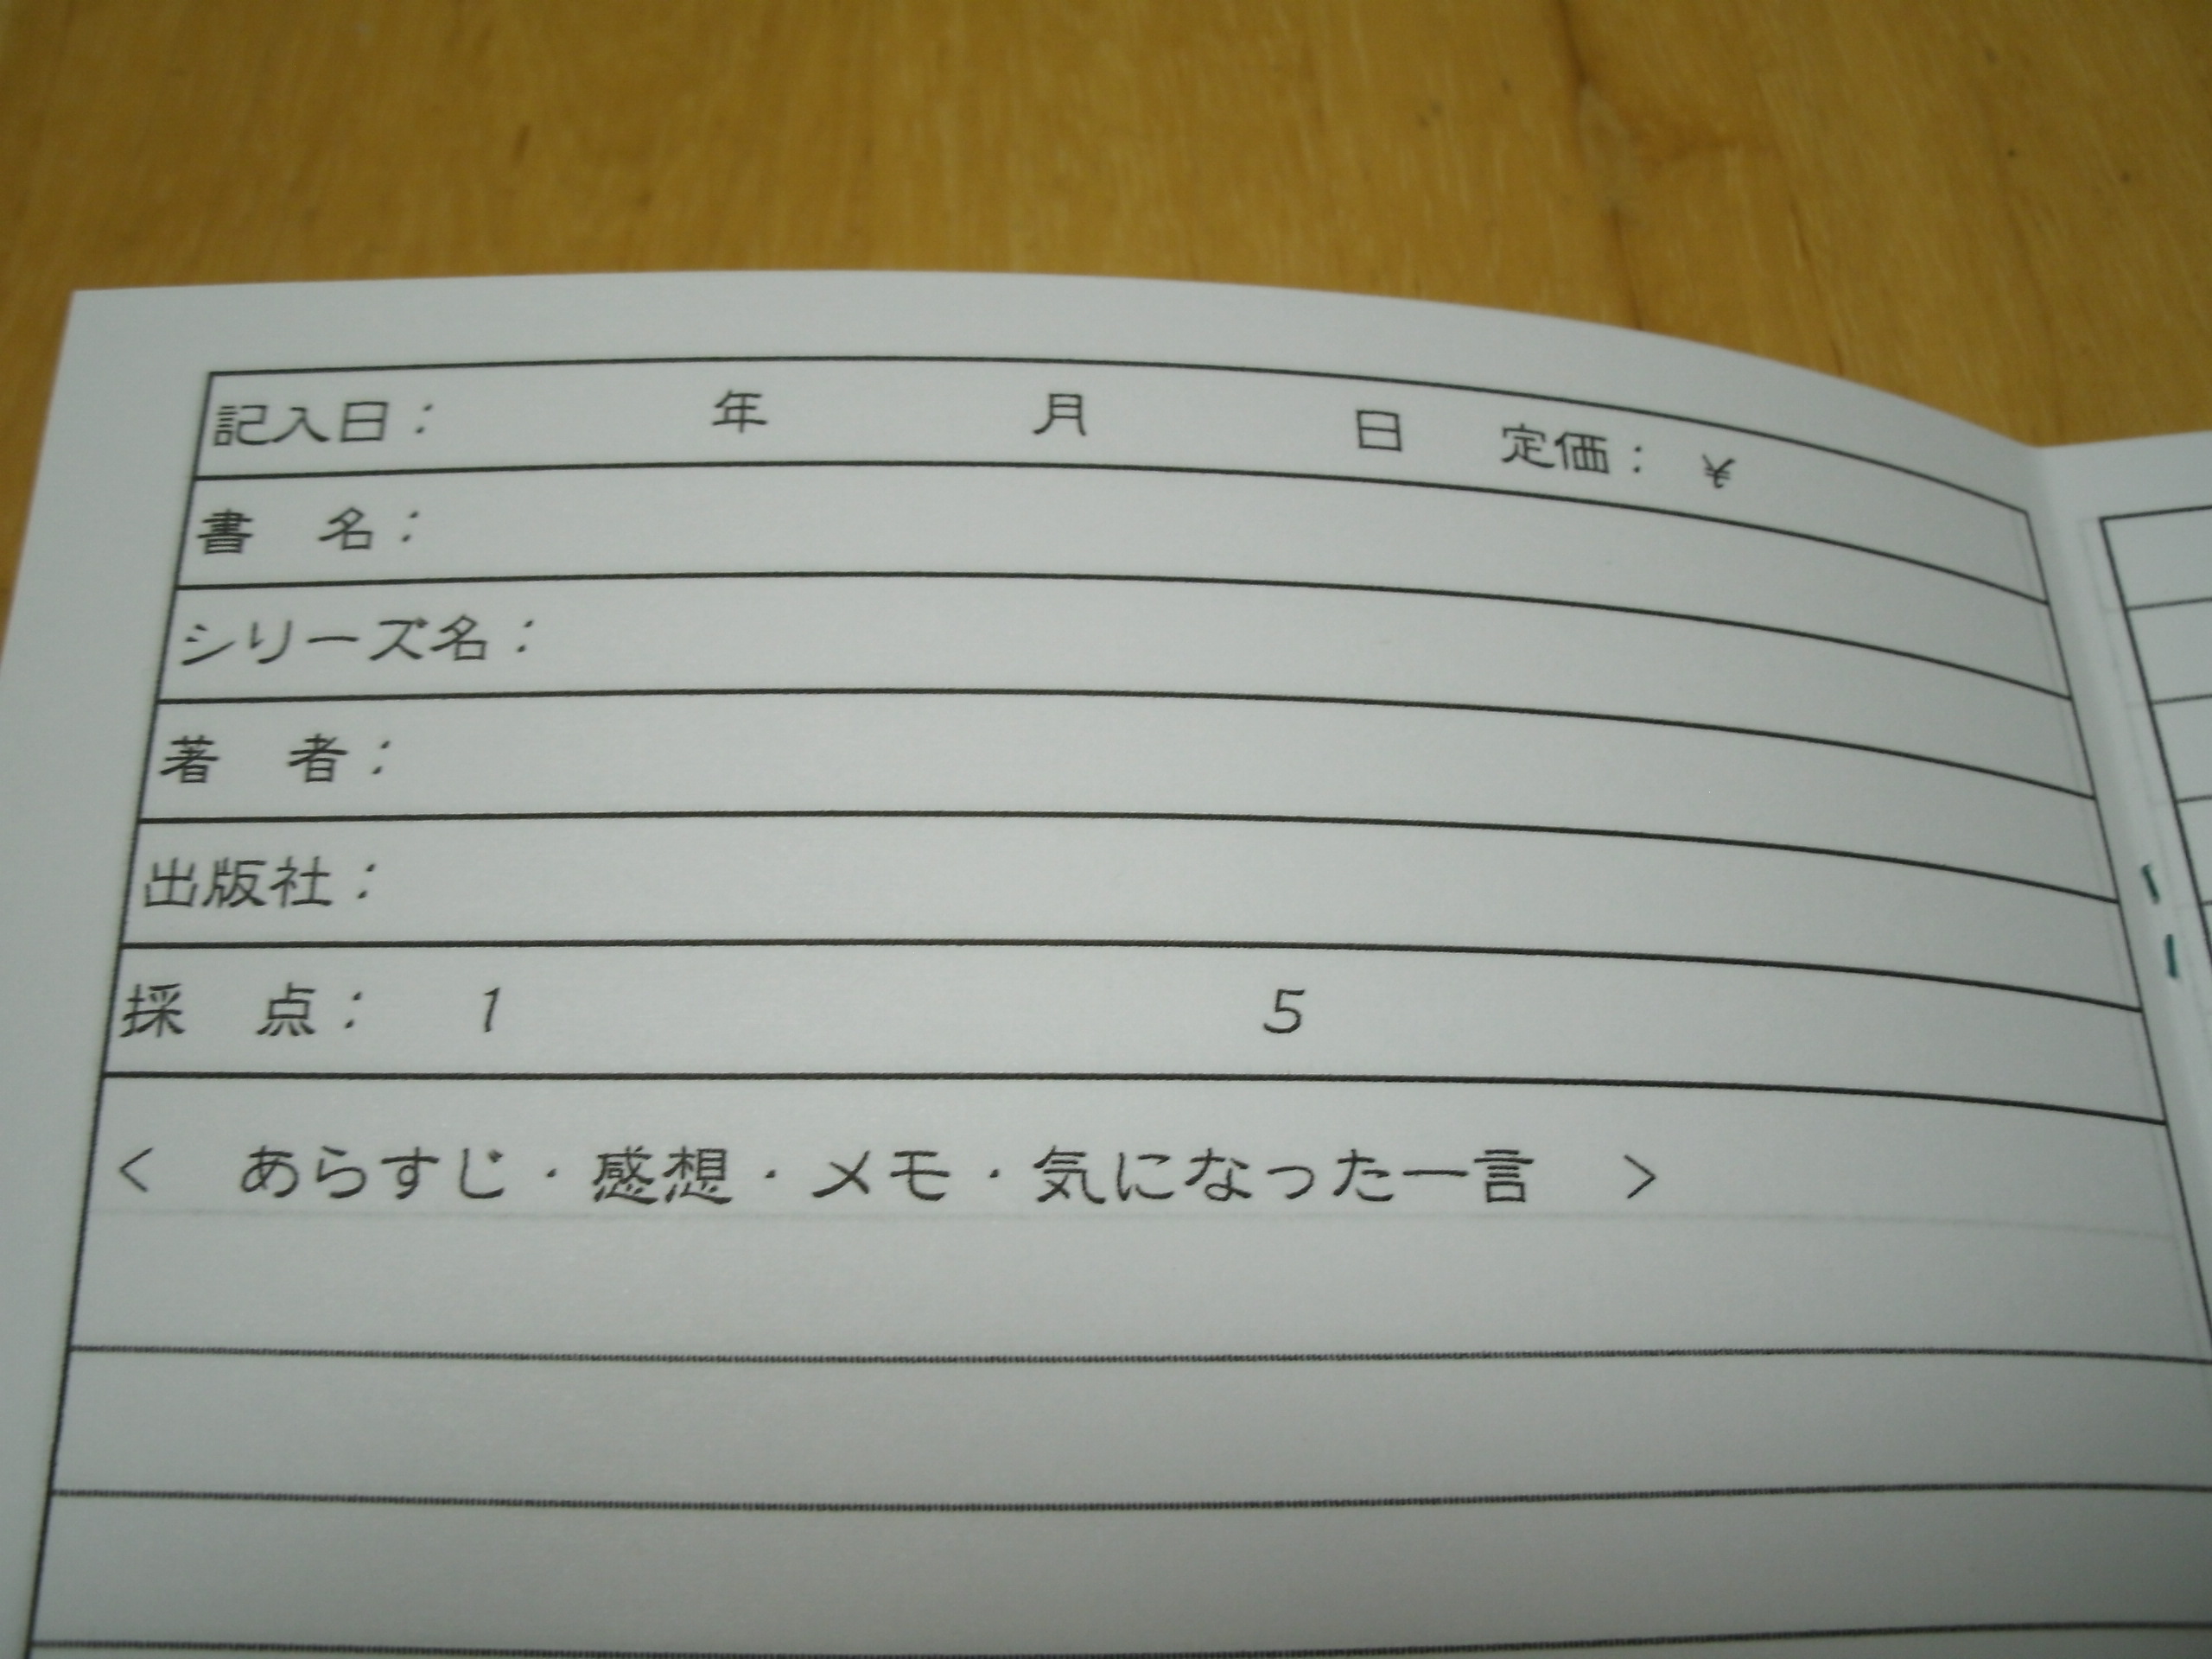 記入日： 年 月 日 定価： ¥
書 名：
シリーズ名：
著 者：
出版社：
採 点： 1 5
< あらすじ・感想・メモ・気になった一言 >